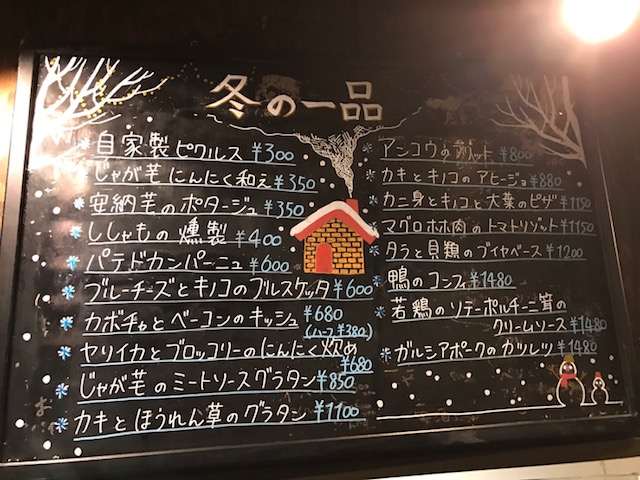 冬の一品
自家製ピクルス ¥300
じゃが芋にんにく和え ¥350
安納芋のポタージュ ¥350
ししゃもの燻製 ¥400
パテドカンパーニュ ¥600
ブルーチーズとキノコのブルスケッタ ¥600
カボチャとベーコンのキッシュ ¥680
(ハーフ ¥380)
ヤリイカとブロッコリーのにんにく炒め
¥680
じゃが芋のミートソースグラタン ¥850
カキとほうれん草のグラタン ¥1100
アンコウの ¥800
カキとキノコのアヒージョ ¥880
カニ身とキノコと大葉のピザ ¥1150
マグロホホ肉のトマトリゾット ¥1150
タラと貝類のブイヤベース ¥1200
鴨のコンフィ ¥1480
若鶏のソテーポルチーニ茸の
クリームソース ¥1480
ガルシアポークのカツレツ ¥1480